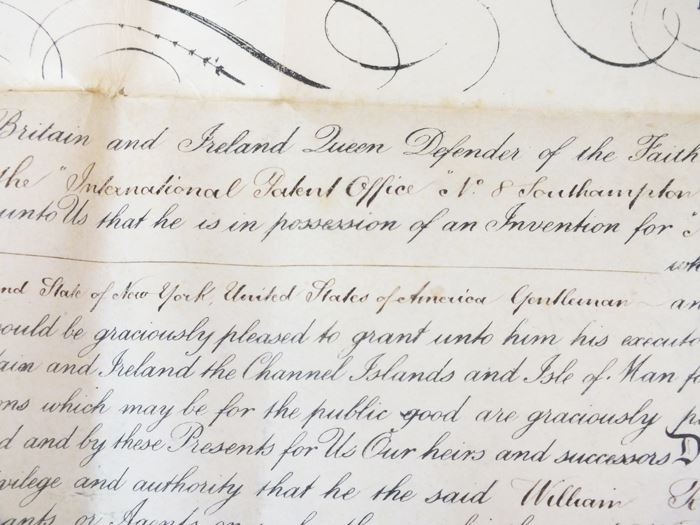 Britain and Ireland Queen Defender of the Faith
the "International Patent Office" No. 8 Southampton
unto Us that he is in possession of an Invention for
and State of New York, United States of America Gentleman
would be graciously pleased to grant unto him his executo
ain and Ireland the Channel Islands and Isle of Man fo
ons which may be for the public good are graciously
d and by these Presents for Us Our heirs and successors D
ivilege and authority that he the said William